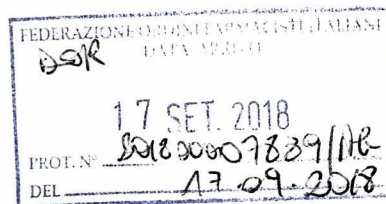 FEDERAZIONE ORDINI FARMACISTI ITALIANI
DATA ARRIVO
17 SET. 2018
PROT. N° 201800007839/AG
DEL 17.09.2018